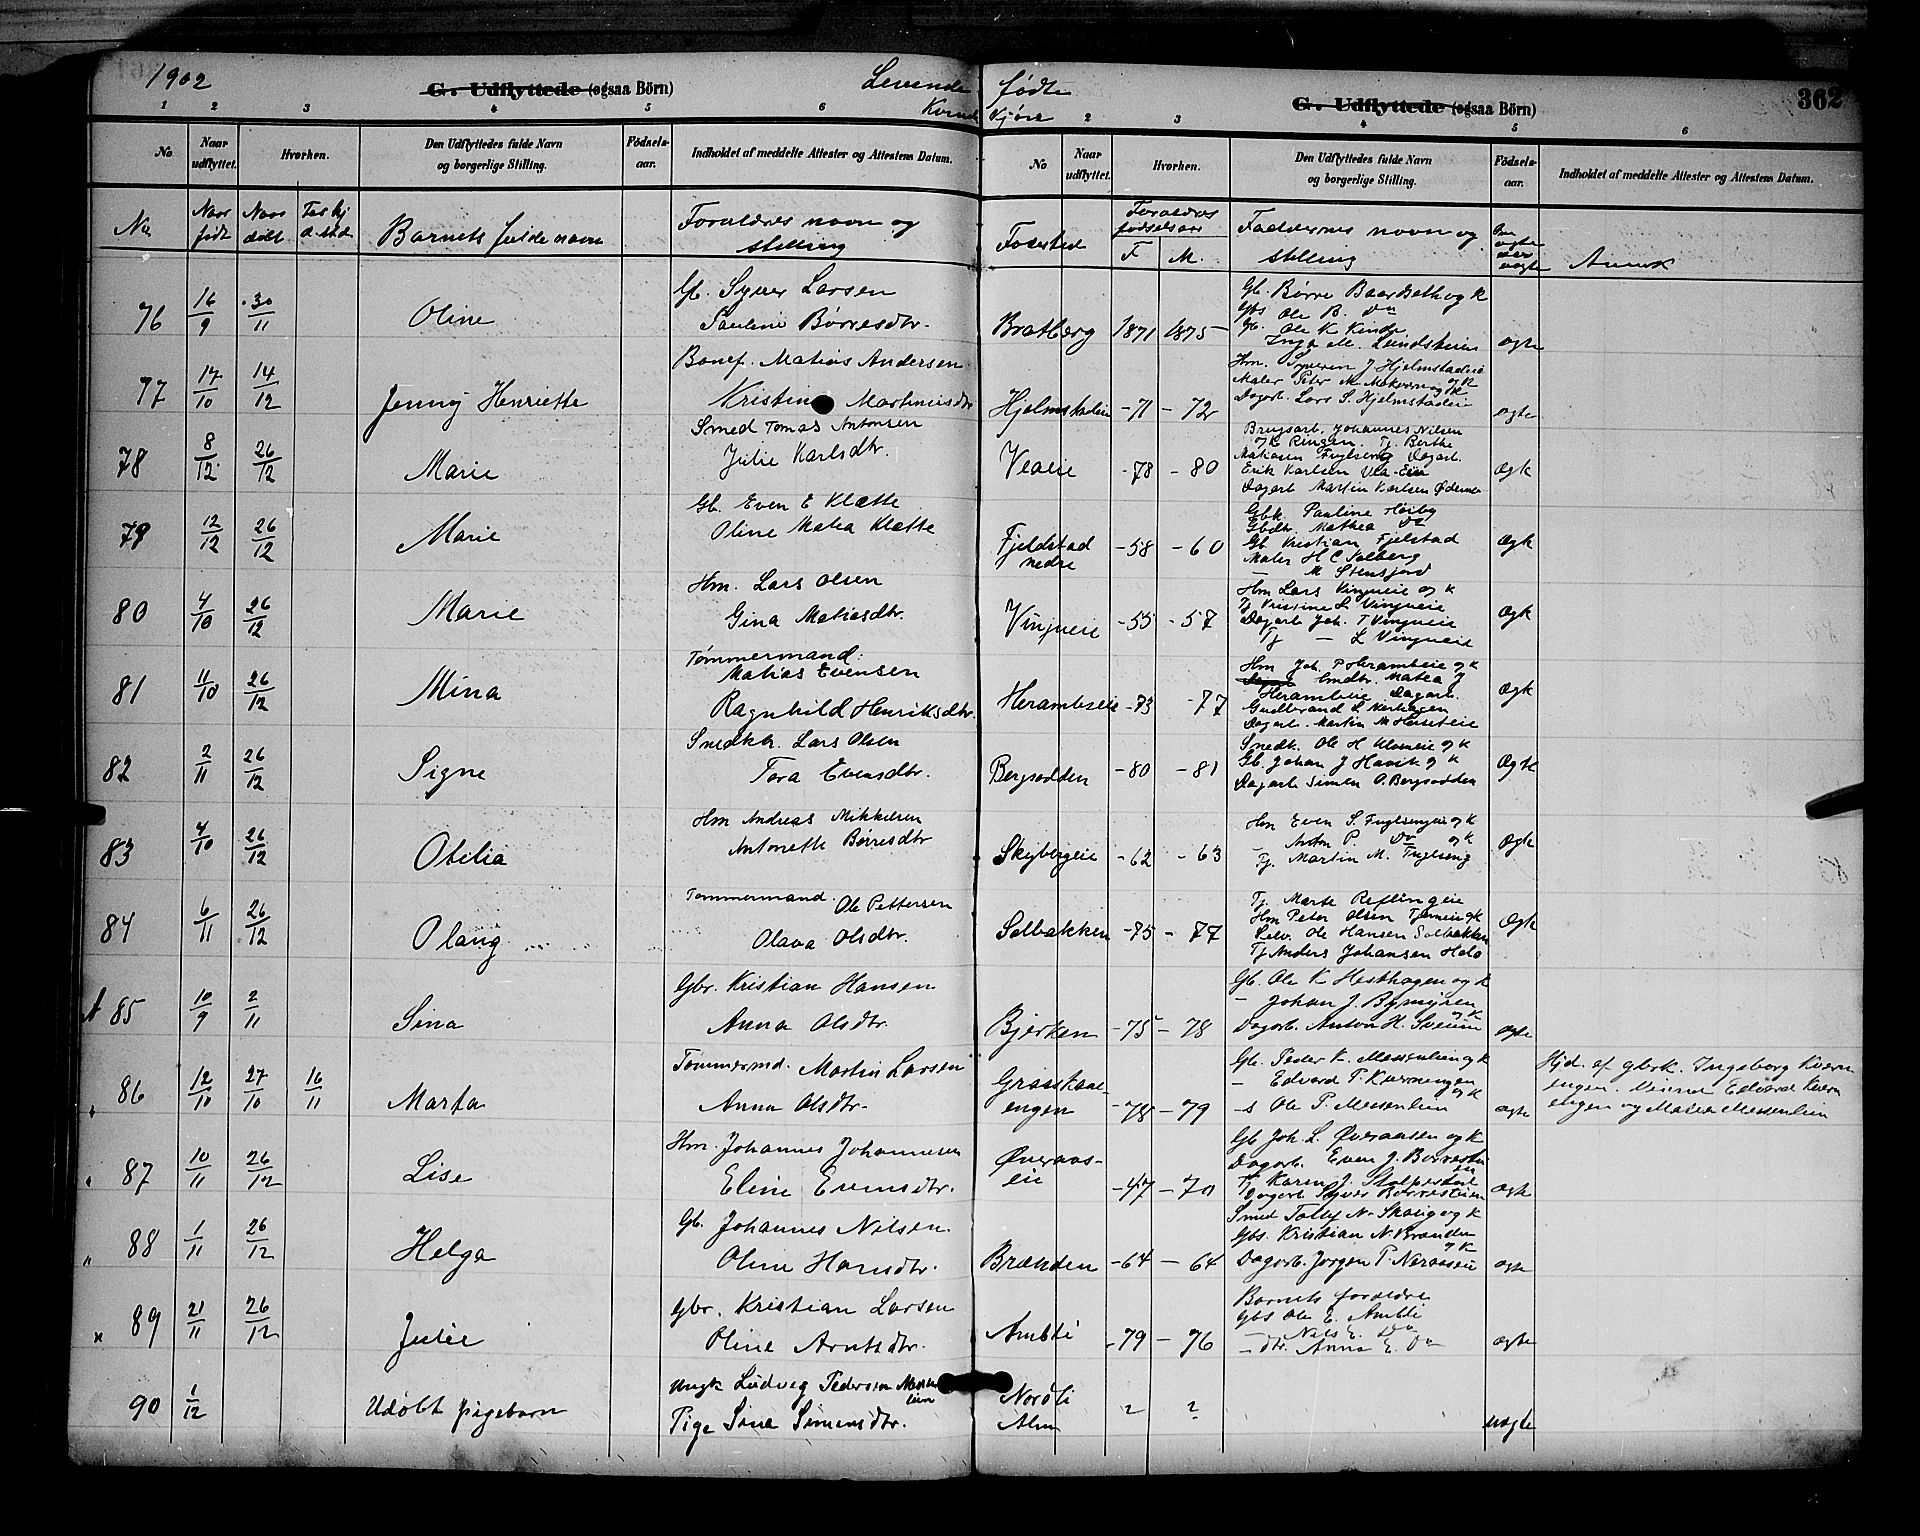 1902
G. Udflyttede (ogsaa Börn)
Levende
Kvinde
1 2 3 4 5 6
No
Naar udflyttet.
Hvorhen.
Den Udflyttedes fulde Navn og borgerlige Stilling.
Födsels-aar.
Indholdet af meddelte Attester og Attestens Datum.
No
Naar født
Naar døbt
Barnets fulde navn
Forældres navn og stilling
76 16/9 30/11 Oline Gb. Syver Larsen
Pauline Børresdtr.
77 17/10 14/12 Jenny Henriette Matias Andersen
Kristine Martinusdtr
78 8/12 26/12 Marie Smed Tomas Antonsen
Julie Karlsdtr.
79 12/12 26/12 Marie Gb. Even E Klætte
Oline Matea Klætte
80 4/10 26/12 Marie Hm. Lars Olsen
Gina Matiasdtr.
81 11/10 26/12 Mina Tømmermand
Matias Evensen
Ragnhild Henriksdtr.
82 2/11 26/12 Signe Snedkr. Lars Olsen
Tora Evensdtr.
83 4/10 26/12 Otilia Hm Andreas Mikkelsen
Antonette Børresdtr
84 6/11 26/12 Olaug Tømmermand Ole Pettersen
Olava Olsdtr.
85 10/9 2/11 Sina Gbr. Kristian Hansen
Anna Olsdtr.
86 12/10 27/10 16/11 Marta Tømmermd. Martin Larsen
Anna Olsdtr.
87 10/11 26/12 Lise Hm. Johannes Johannesen
Eline Evensdtr.
88 1/11 26/12 Helga Gb. Johannes Nilsen
Oline Hansdtr.
89 21/11 26/12 Julie Gbr. Kristian Larsen
Oline Arntsdtr.
90 1/12 Udøbt pigebarn Ungk Ludvig Pedersen Messenlien
Pige Sina Simensdtr.
fødte
Kjøn
G. Udflyttede (ogsaa Börn)
362
2 3 4 5 6
No
Naar udflyttet.
Hvorhen.
Den Udflyttedes fulde Navn og borgerlige Stilling.
Födsels-aar.
Indholdet af meddelte Attester og Attestens Datum.
Fødested
Forældres fødselsaar
F. M.
Faddernes navn og stilling
Anmk
Bratberg 1871 1875 ægte
Gb. Børre Baarbeth og K
Gbs Ole B. Do
Gb. Ole K Kinde
Inga M. Lundskeien
Hjelmstadeie -71 -72 ægte
Hm. Syverin J Hjelmstadeie
Maler Peter M. og K
Dagarb. Lars S. Hjelmstadeie
Veaeie -78 -80 Ægte
Brugsarb. Johannes Nilsen
og K Ringen. Tj. Berthe
Matiasen Fuglseng Dagarb.
Erik Karlsen Vea-Eie
Dagarb Martin Karlsen
Fjeldstad nedre -58 -60 Ægk
Gbk. Pauline Høiby
Gbdtr. Mathea Do
Gb. Kristian Fjelstad
Maler H C Solberg
— M Stensjord
Vingneie -55 -57 Ægk
Hm Lars Vingneie og K
Tj Kristine L Vingneie
Dagarb Joh. T Vingneie
Tj — L Vingneie
Herambseie -73 -77 Ægk
Hm Joh. P Herambeie og K
Gmdtr. Matea
Herambeie Dagarb.
Gudbrand L
Dagarb. Martin M
Bergsodden -80 -81 Ægk
Snedk. Ole H og K
Gb. Johan J Havik og K
Dagarb Simen O. Bergsodden
Skybergeie -62 -63 Ægk
Hm Even S. Fuglsengeie og K
— Anton P. Do og K
Tj. Martin M. Fuglseng
Solbakken -75 -77 Ægk
Tj. Marte Reflingeie
Hm Peter Olsen og K
Selv. Ole Hansen Solbakken
Tj Anders Johansen Holo
Bjerken -75 -78 ægte
Gb. Ole K Hesthagen og K
— Johan J. Bymyren og K
Dagarb. Anton H. Sveiune
Graaskaaengen -78 -79 ægte
Gb. Peder K. Messenlien og K
— Edvard P. Kvernengen og K
-s Ole P. Messenlien
Hjd. af gbrk. Ingeborg Kvern
engen. Vidne Edvard Kvern
engen og Matea Messenlien
Øveraas-eie -47 -70 ægte
Gb Joh. L. Øveraasen og K
Dagarb. Even J. Borresteien
Tj Karen J. Stolpestad
Dagarb Syver Borresteien
Brænden -64 -64 ægte
Smed Tollef N. Skalig og K
Gbs. Kristian N. Brænden og K
Dagarb. Jørgen P. Neraaseie
Ambli -79 -76 ægte
Barnets forældre
Gbs Ole E. Ambli
— Nils E. Do
— dtr. Anna E. Do
Nordli ? ? uægte